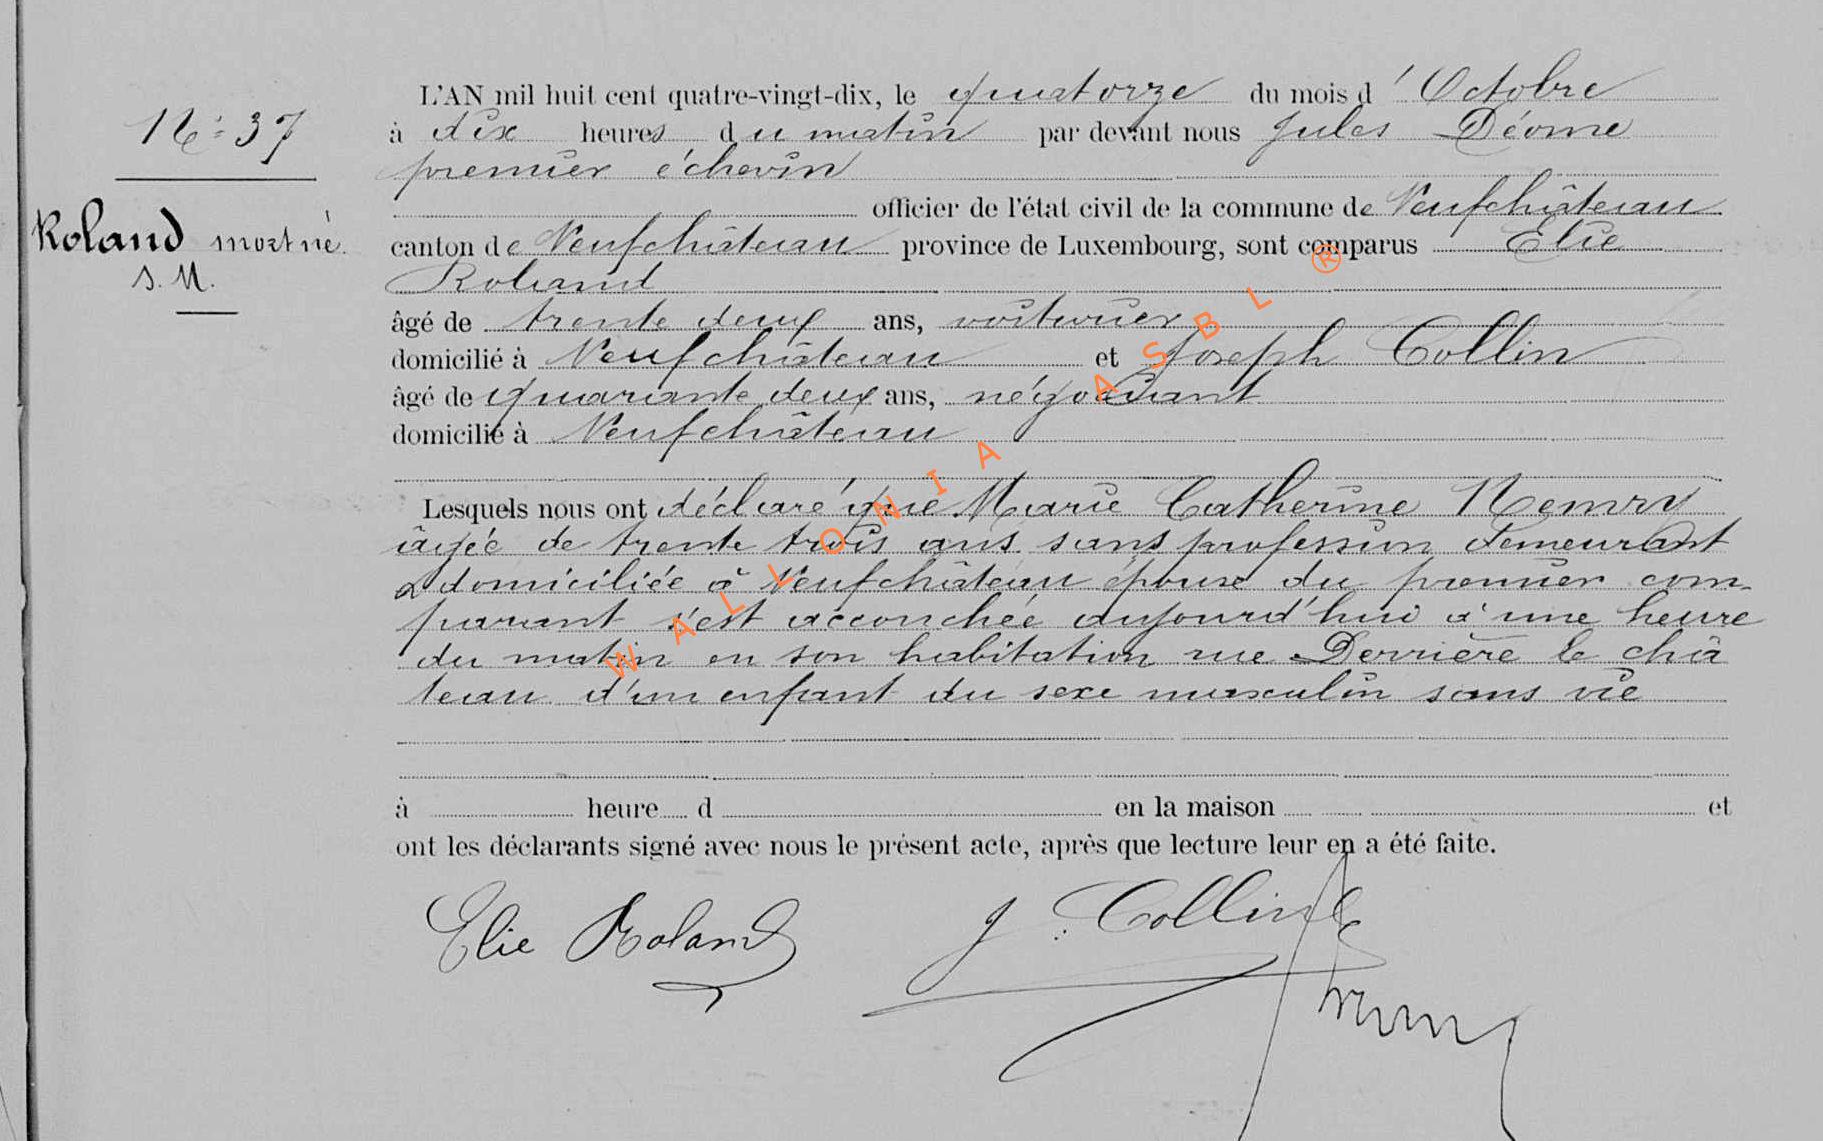 N° 37
Roland mort né.
S. M.
L'AN mil huit cent quatre-vingt-dix, le quatorze du mois d'Octobre
à dix heures du matin par devant nous Jules Déome
premier échevin
officier de l'état civil de la commune de Neufchâteau
canton de Neufchâteau province de Luxembourg, sont comparus Elie
Roland
âgé de trente deux ans, voiturier
domicilié à Neufchâteau et Joseph Collin
âgé de quarante deux ans, négociant
domicilié à Neufchâteau
Lesquels nous ont déclaré que Marie Catherine Nemry
âgée de trente trois ans sans profession demeurant
& domiciliée à Neufchâteau épouse du premier com-
parant s'est accouchée aujourd'hui à une heure
du matin en son habitation rue Derrière le châ
teau d'un enfant du sexe masculin sans vie
à heure d en la maison et
ont les déclarants signé avec nous le présent acte, après que lecture leur en a été faite.
Elie Roland J. Collin
WALLONIA ASBL ®